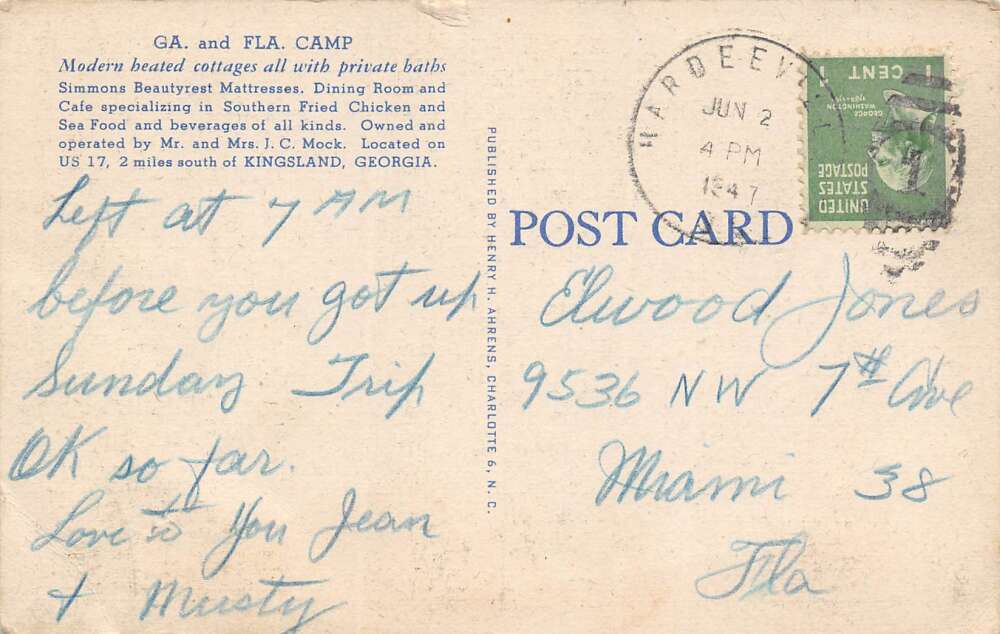 GA. and FLA. CAMP
Modern heated cottages all with private baths
Simmons Beautyrest Mattresses. Dining Room and
Cafe specializing in Southern Fried Chicken and
Sea Food and beverages of all kinds. Owned and
operated by Mr. and Mrs. J. C. Mock. Located on
US 17, 2 miles south of KINGSLAND, GEORGIA.
Left at 7 AM
before you got up
Sunday Trip
OK so far.
Love to You Jean
+ Musty
PUBLISHED BY HENRY H. AHRENS, CHARLOTTE 6, N. C.
POST CARD
JUN 2
4 PM
1947
1 CENT 1
GEORGE
WASHINGTON
UNITED
STATES
POSTAGE
Elwood Jones
9536 NW 7th Ave
Miami 38
Fla